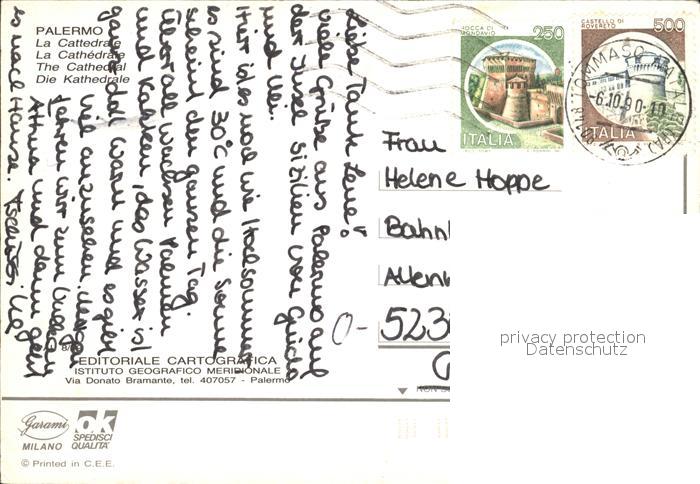 PALERMO
La Cattedrale
La Cathédrale
The Cathedral
Die Kathedrale
Liebe Tante Lene!
Viele Grüße aus Palermo auf
der Insel Sizilien von Guido
und
Hier ist es noch wie Hochsommer
es sind 30°C und die Sonne
scheint den ganzen Tag.
Überall wachsen Palmen
und Kakteen, das Wasser ist
warm und es gibt
viel anzusehen. Morgen
fahren wir zum
Ätna und dann geht
es nach Hause. Tschüssi
ROCCA DI
MONDAVIO
250
ITALIA
CASTELLO DI
ROVERETO
500
ITALIA
-6.10.90-10
Frau
Helene Hoppe
Bahn
O-523
privacy protection
Datenschutz
EDITORIALE CARTOGRAFICA
ISTITUTO GEOGRAFICO MERIDIONALE
Via Donato Bramante, tel. 407057 - Palermo
Garami
MILANO
OK
SPEDISCI
QUALITÀ
© Printed in C.E.E.